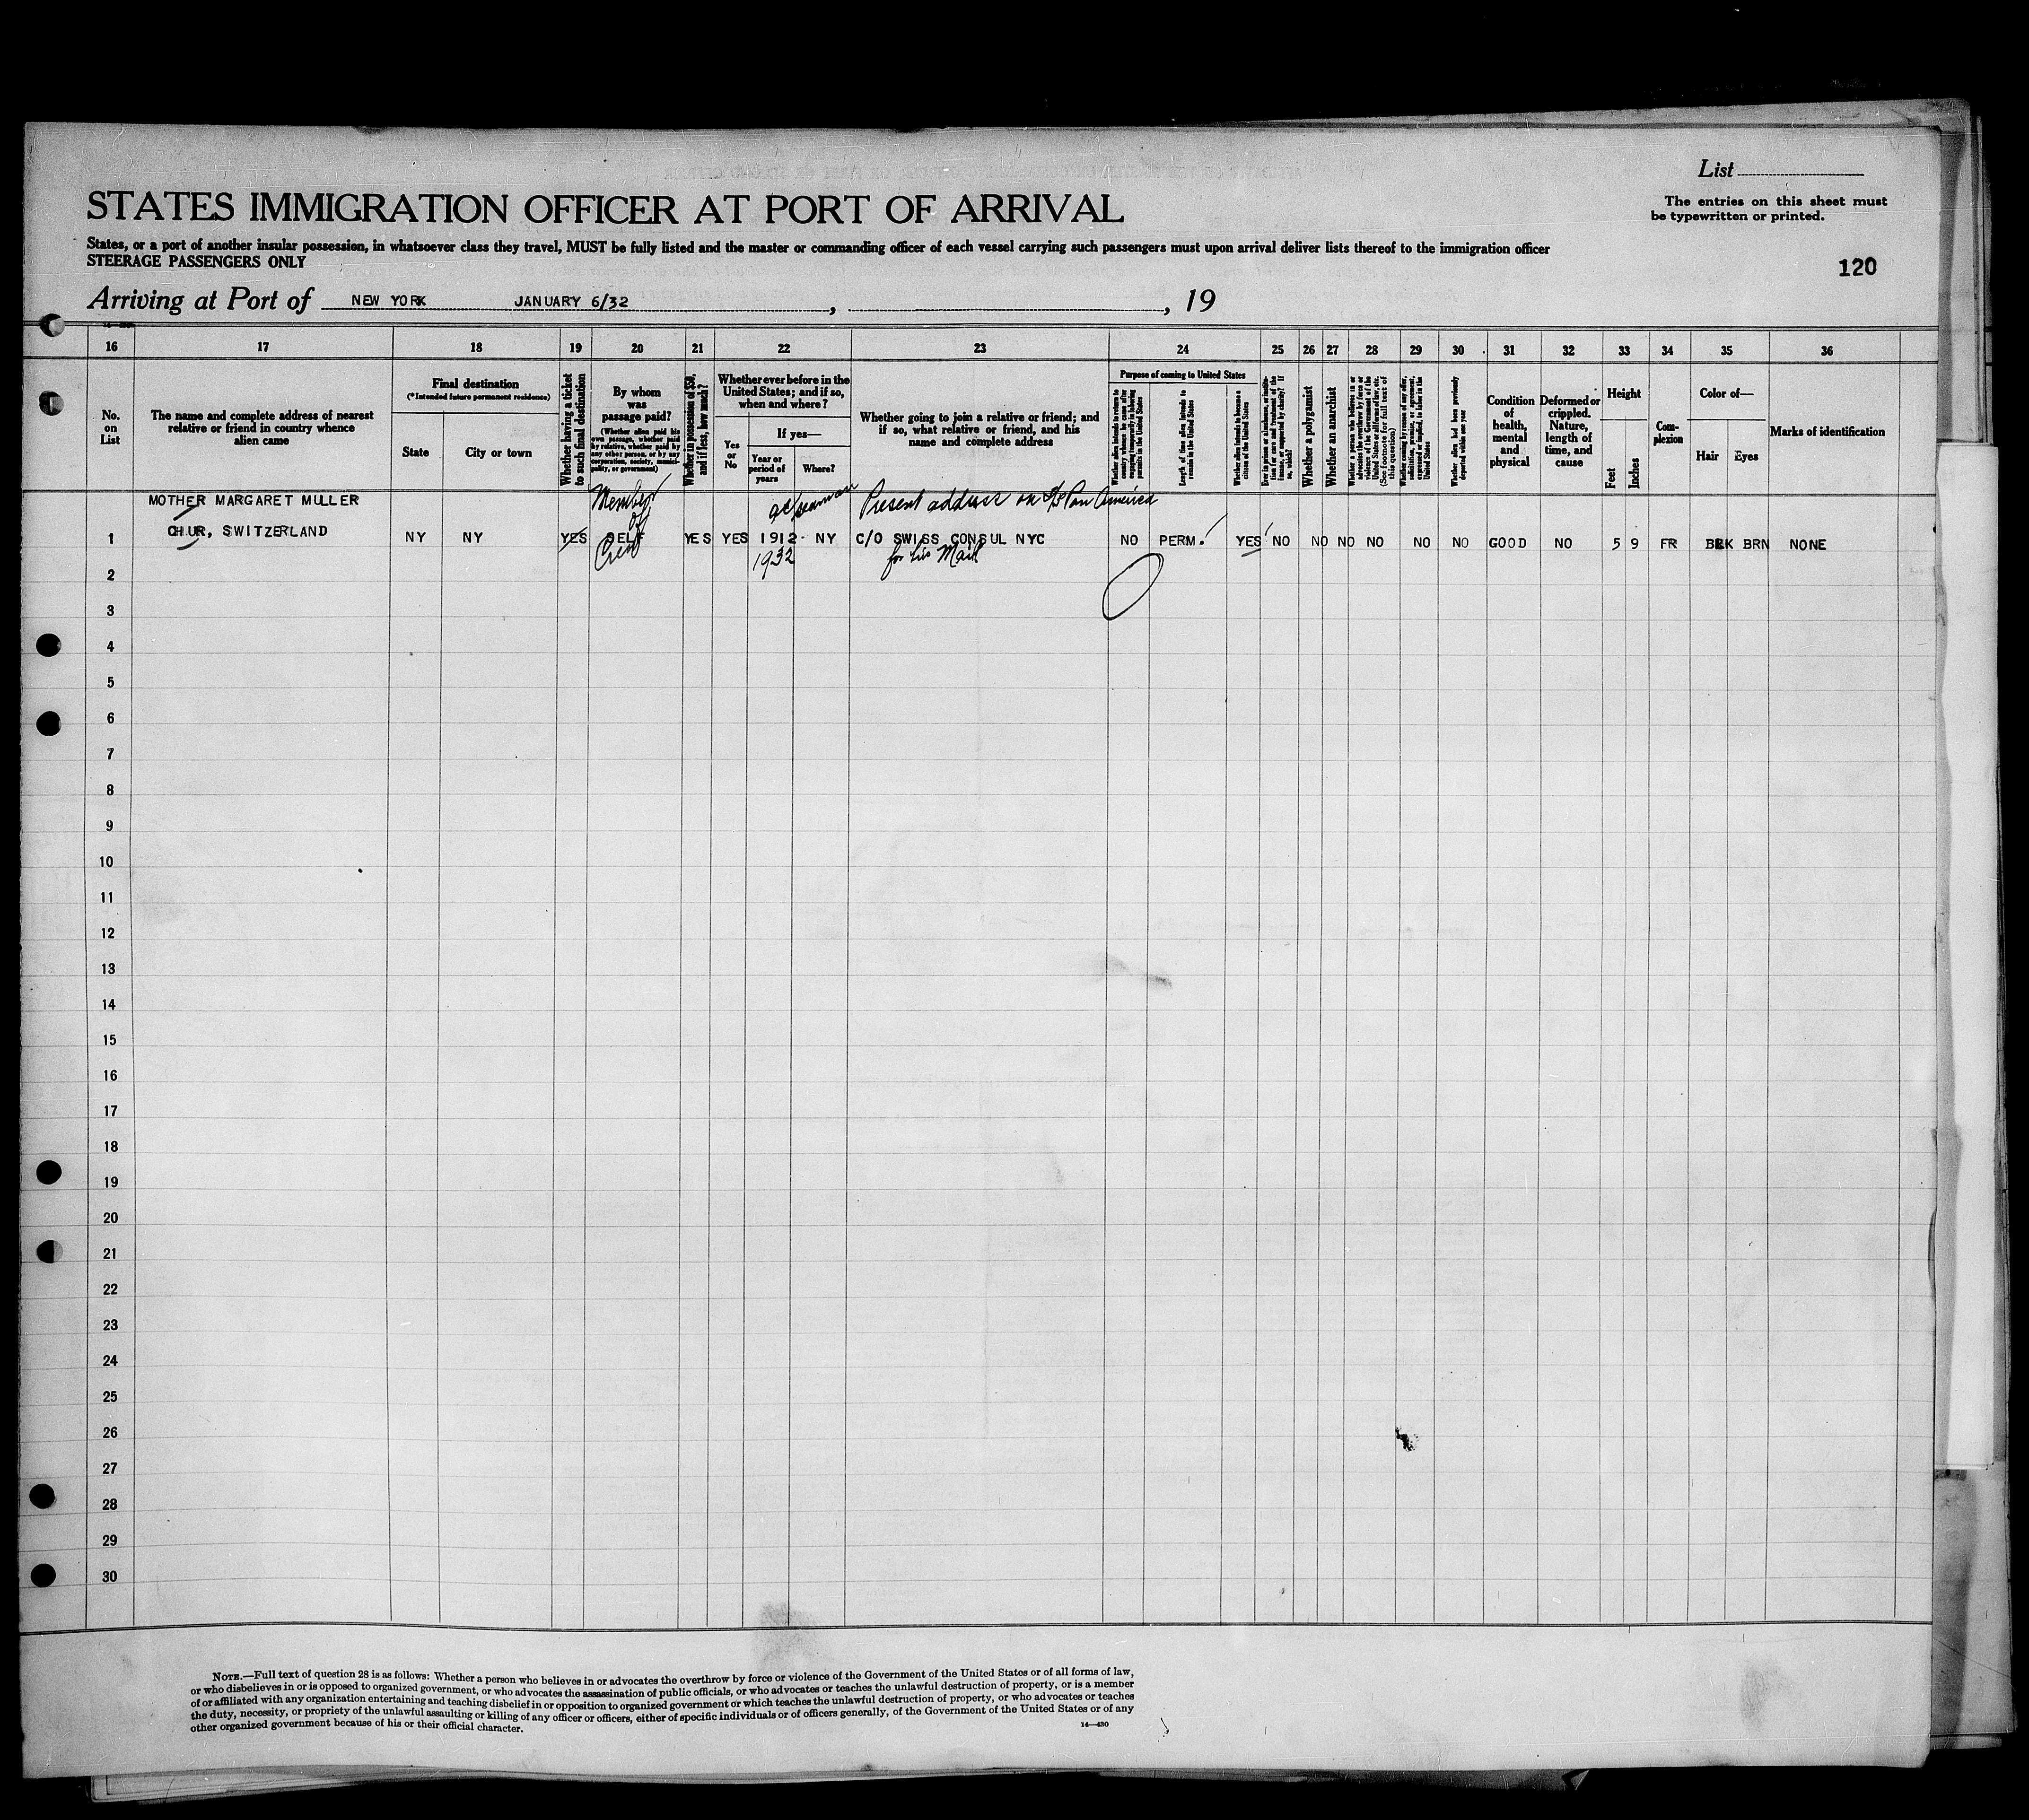 List
STATES IMMIGRATION OFFICER AT PORT OF ARRIVAL
The entries on this sheet must
be typewritten or printed.
States, or a port of another insular possession, in whatsoever class they travel, MUST be fully listed and the master or commanding officer of each vessel carrying such passengers must upon arrival deliver lists thereof to the immigration officer
STEERAGE PASSENGERS ONLY
120
Arriving at Port of NEW YORK JANUARY 6/32, , 19
16 17 18 19 20 21 22 23 24 25 26 27 28 29 30 31 32 33 34 35 36
No.
on
List
The name and complete address of nearest
relative or friend in country whence
alien came
Final destination
(*Intended future permanent residence)
State
City or town
Whether having a ticket
to such final destination
By whom
was
passage paid?
(Whether alien paid his
own passage, whether paid
by relative, whether paid by
any other person, or by any
corporation, society, munici-
pality, or government)
Whether in possession of $50,
and if less, how much?
Whether ever before in the
United States; and if so,
when and where?
Yes
or
No
If yes—
Year or
period of
years
Where?
Whether going to join a relative or friend; and
if so, what relative or friend, and his
name and complete address
Purpose of coming to United States
Whether alien intends to return to
country whence he came after
engaging temporarily in laboring
pursuits in the United States
Length of time alien intends to
remain in the United States
Whether alien intends to become a
citizen of the United States
Whether a polygamist
Whether an anarchist
Whether a person who believes in or
advocates the overthrow by force or
violence of the Government of the
United States or all forms of law, etc.
(See footnote for full text of
this question)
Whether coming by reason of any offer,
solicitation, promise, or agreement,
expressed or implied, to labor in the
United States
Whether alien had been previously
deported within one year
Condition
of
health,
mental
and
physical
Deformed or
crippled.
Nature,
length of
time, and
cause
Height
Feet
Inches
Com-
plexion
Color of—
Hair
Eyes
Marks of identification
MOTHER MARGARET MULLER
Member of Crew
seaman
Present address on SS Pan America
CHUR, SWITZERLAND
1 NY NY YES SELF YES YES 1912- NY C/O SWISS CONSUL NYC NO PERM. YES NO NO NO NO NO NO GOOD NO 5 9 FR BRN NONE
1932
for his Mail
2
3
4
5
6
7
8
9
10
11
12
13
14
15
16
17
18
19
20
21
22
23
24
25
26
27
28
29
30
NOTE.—Full text of question 28 is as follows: Whether a person who believes in or advocates the overthrow by force or violence of the Government of the United States or of all forms of law,
or who disbelieves in or is opposed to organized government, or who advocates the assassination of public officials, or who advocates or teaches the unlawful destruction of property, or is a member
of or affiliated with any organization entertaining and teaching disbelief in or opposition to organized government or which teaches the unlawful destruction of property, or who advocates or teaches
the duty, necessity, or propriety of the unlawful assaulting or killing of any officer or officers, either of specific individuals or of officers generally, of the Government of the United States or of any
other organized government because of his or their official character.
14—430